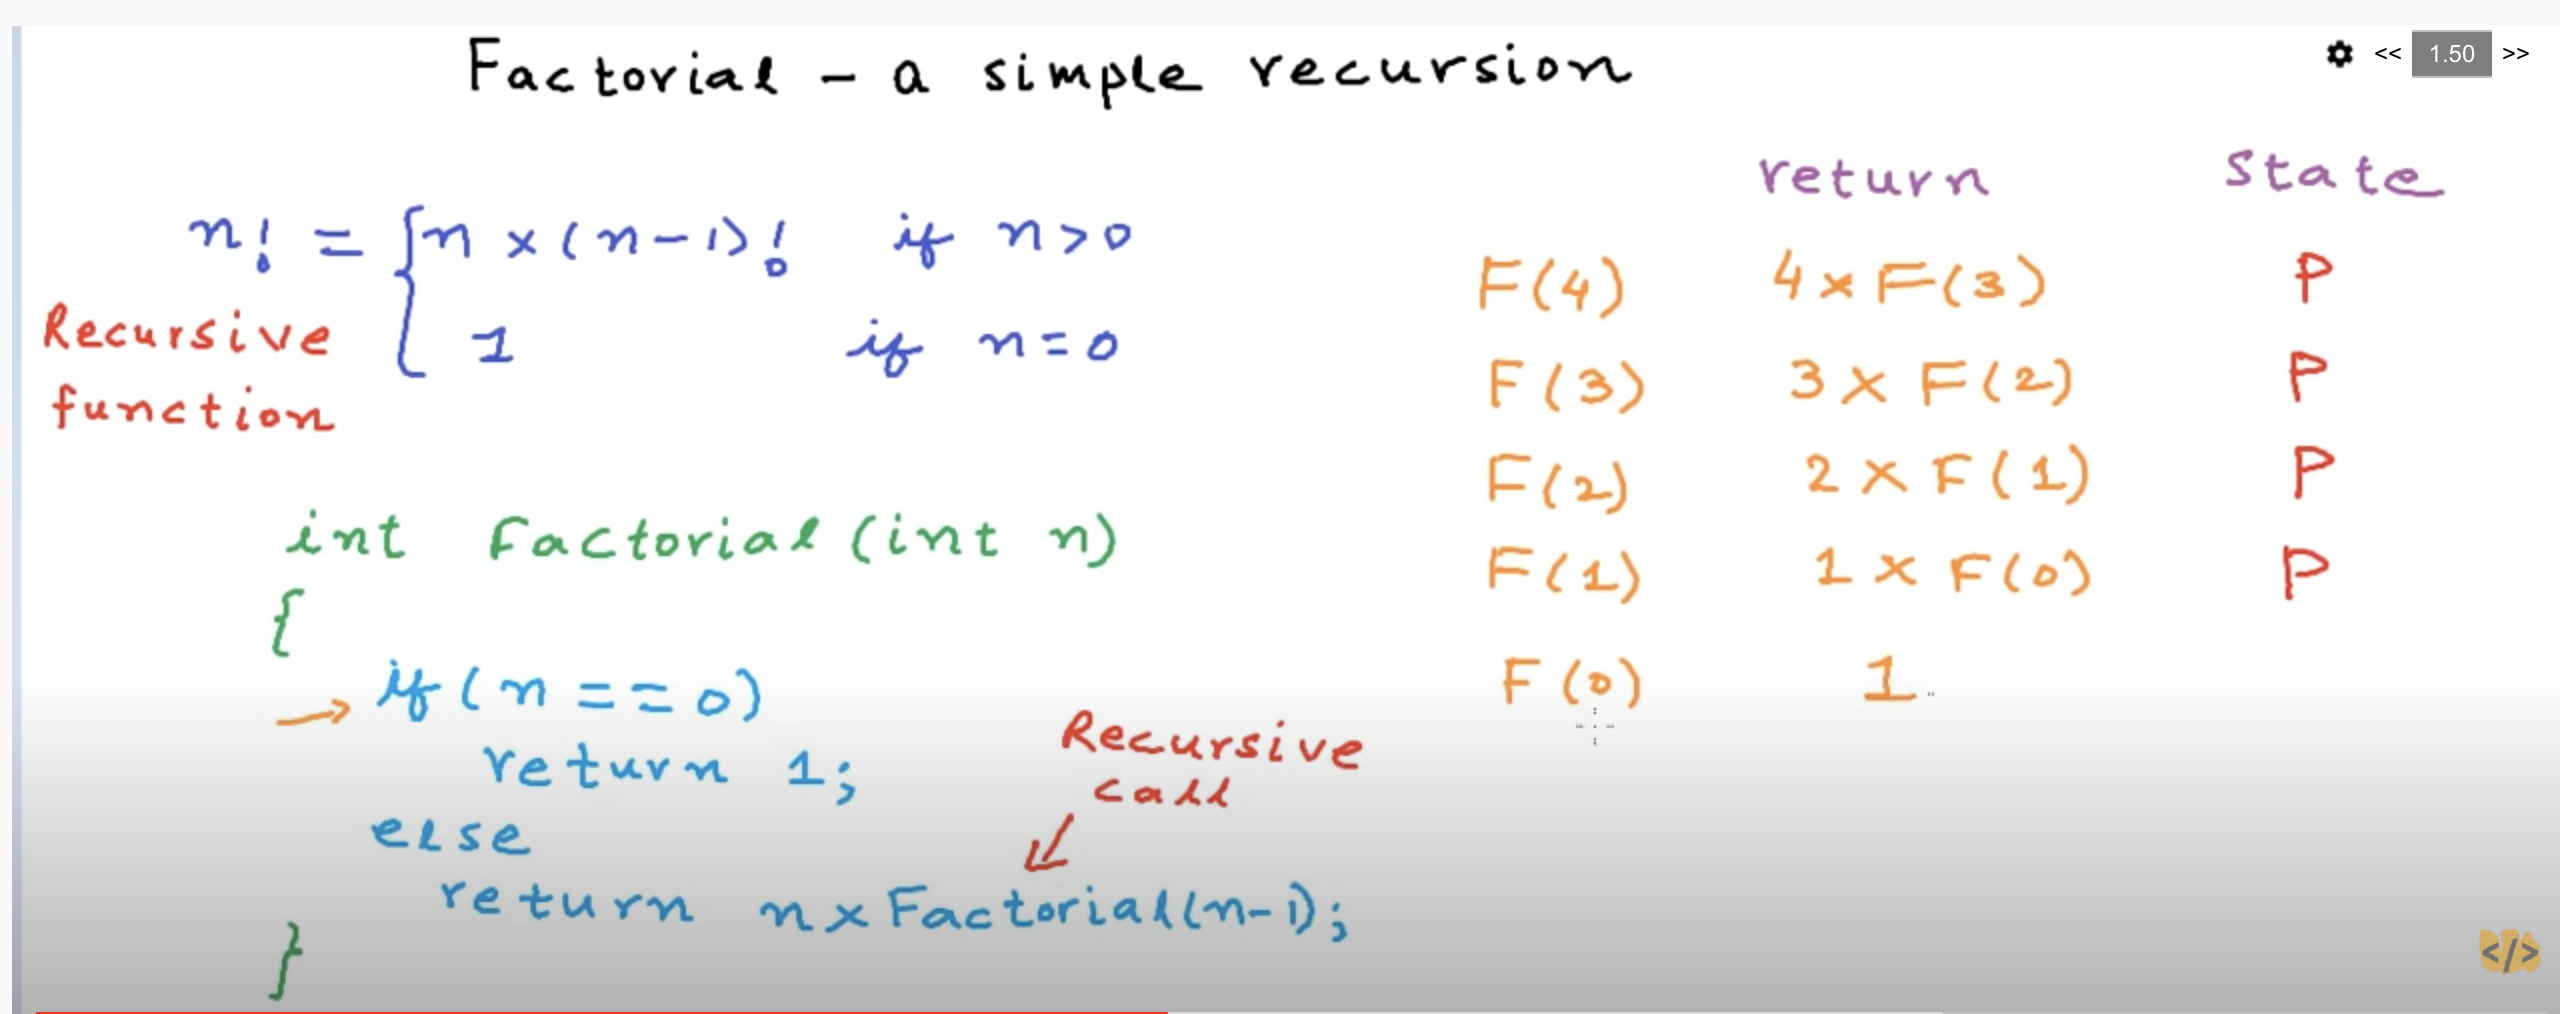 Factorial - a simple recursion
<< 1.50 >>
n! = { n × (n-1)! if n>0
1 if n=0
Recursive
function
int Factorial (int n)
{
→ if (n == 0)
return 1;
else
return n × Factorial(n-1);
}
Recursive
call
return state
F(4) 4 × F(3) P
F(3) 3 × F(2) P
F(2) 2 × F(1) P
F(1) 1 × F(0) P
F(0) 1
</>